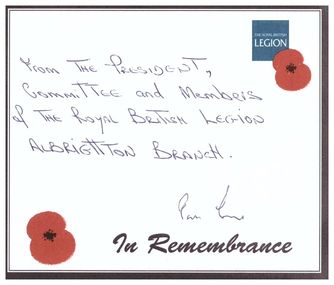 THE ROYAL BRITISH
LEGION
From THE PRESIDENT,
Committee and Members
of THE ROYAL BRITISH LEGION
ALBRIGHTON BRANCH.
In Remembrance